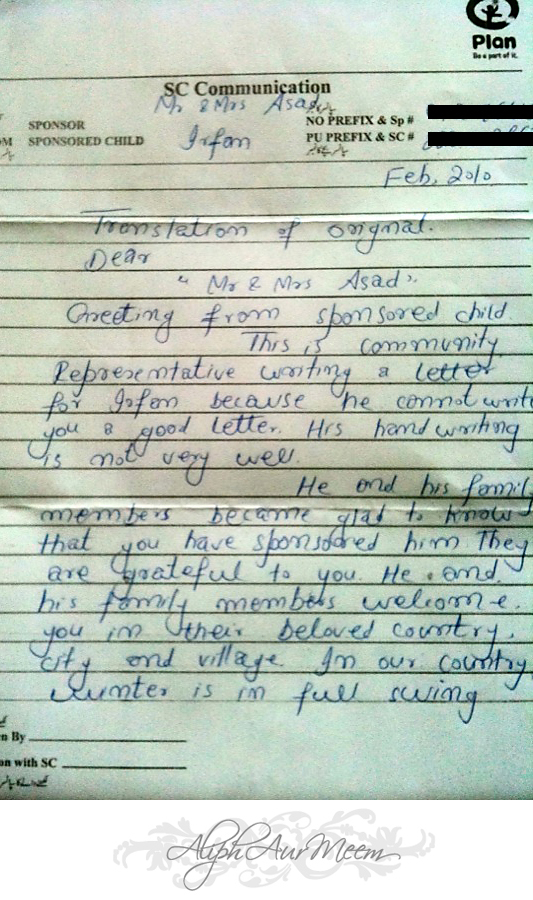 Plan
Be a part of it.
SC Communication
Mr & Mrs Asad
SPONSOR
NO PREFIX & Sp #
OM SPONSORED CHILD
Irfan
PU PREFIX & SC #
Feb, 2010
Translation of original.
Dear
"Mr & Mrs Asad".
Greeting from sponsored child.
This is community
Representative writing a letter
for Irfan because he cannot write
you a good letter. His handwriting
is not very well.
He and his family
members became glad to know
that you have sponsored him They
are grateful to you. He and
his family members welcome
you in their beloved country,
city and village. In our country
winter is in full swing
n By
on with SC
Aliph Aur Meem